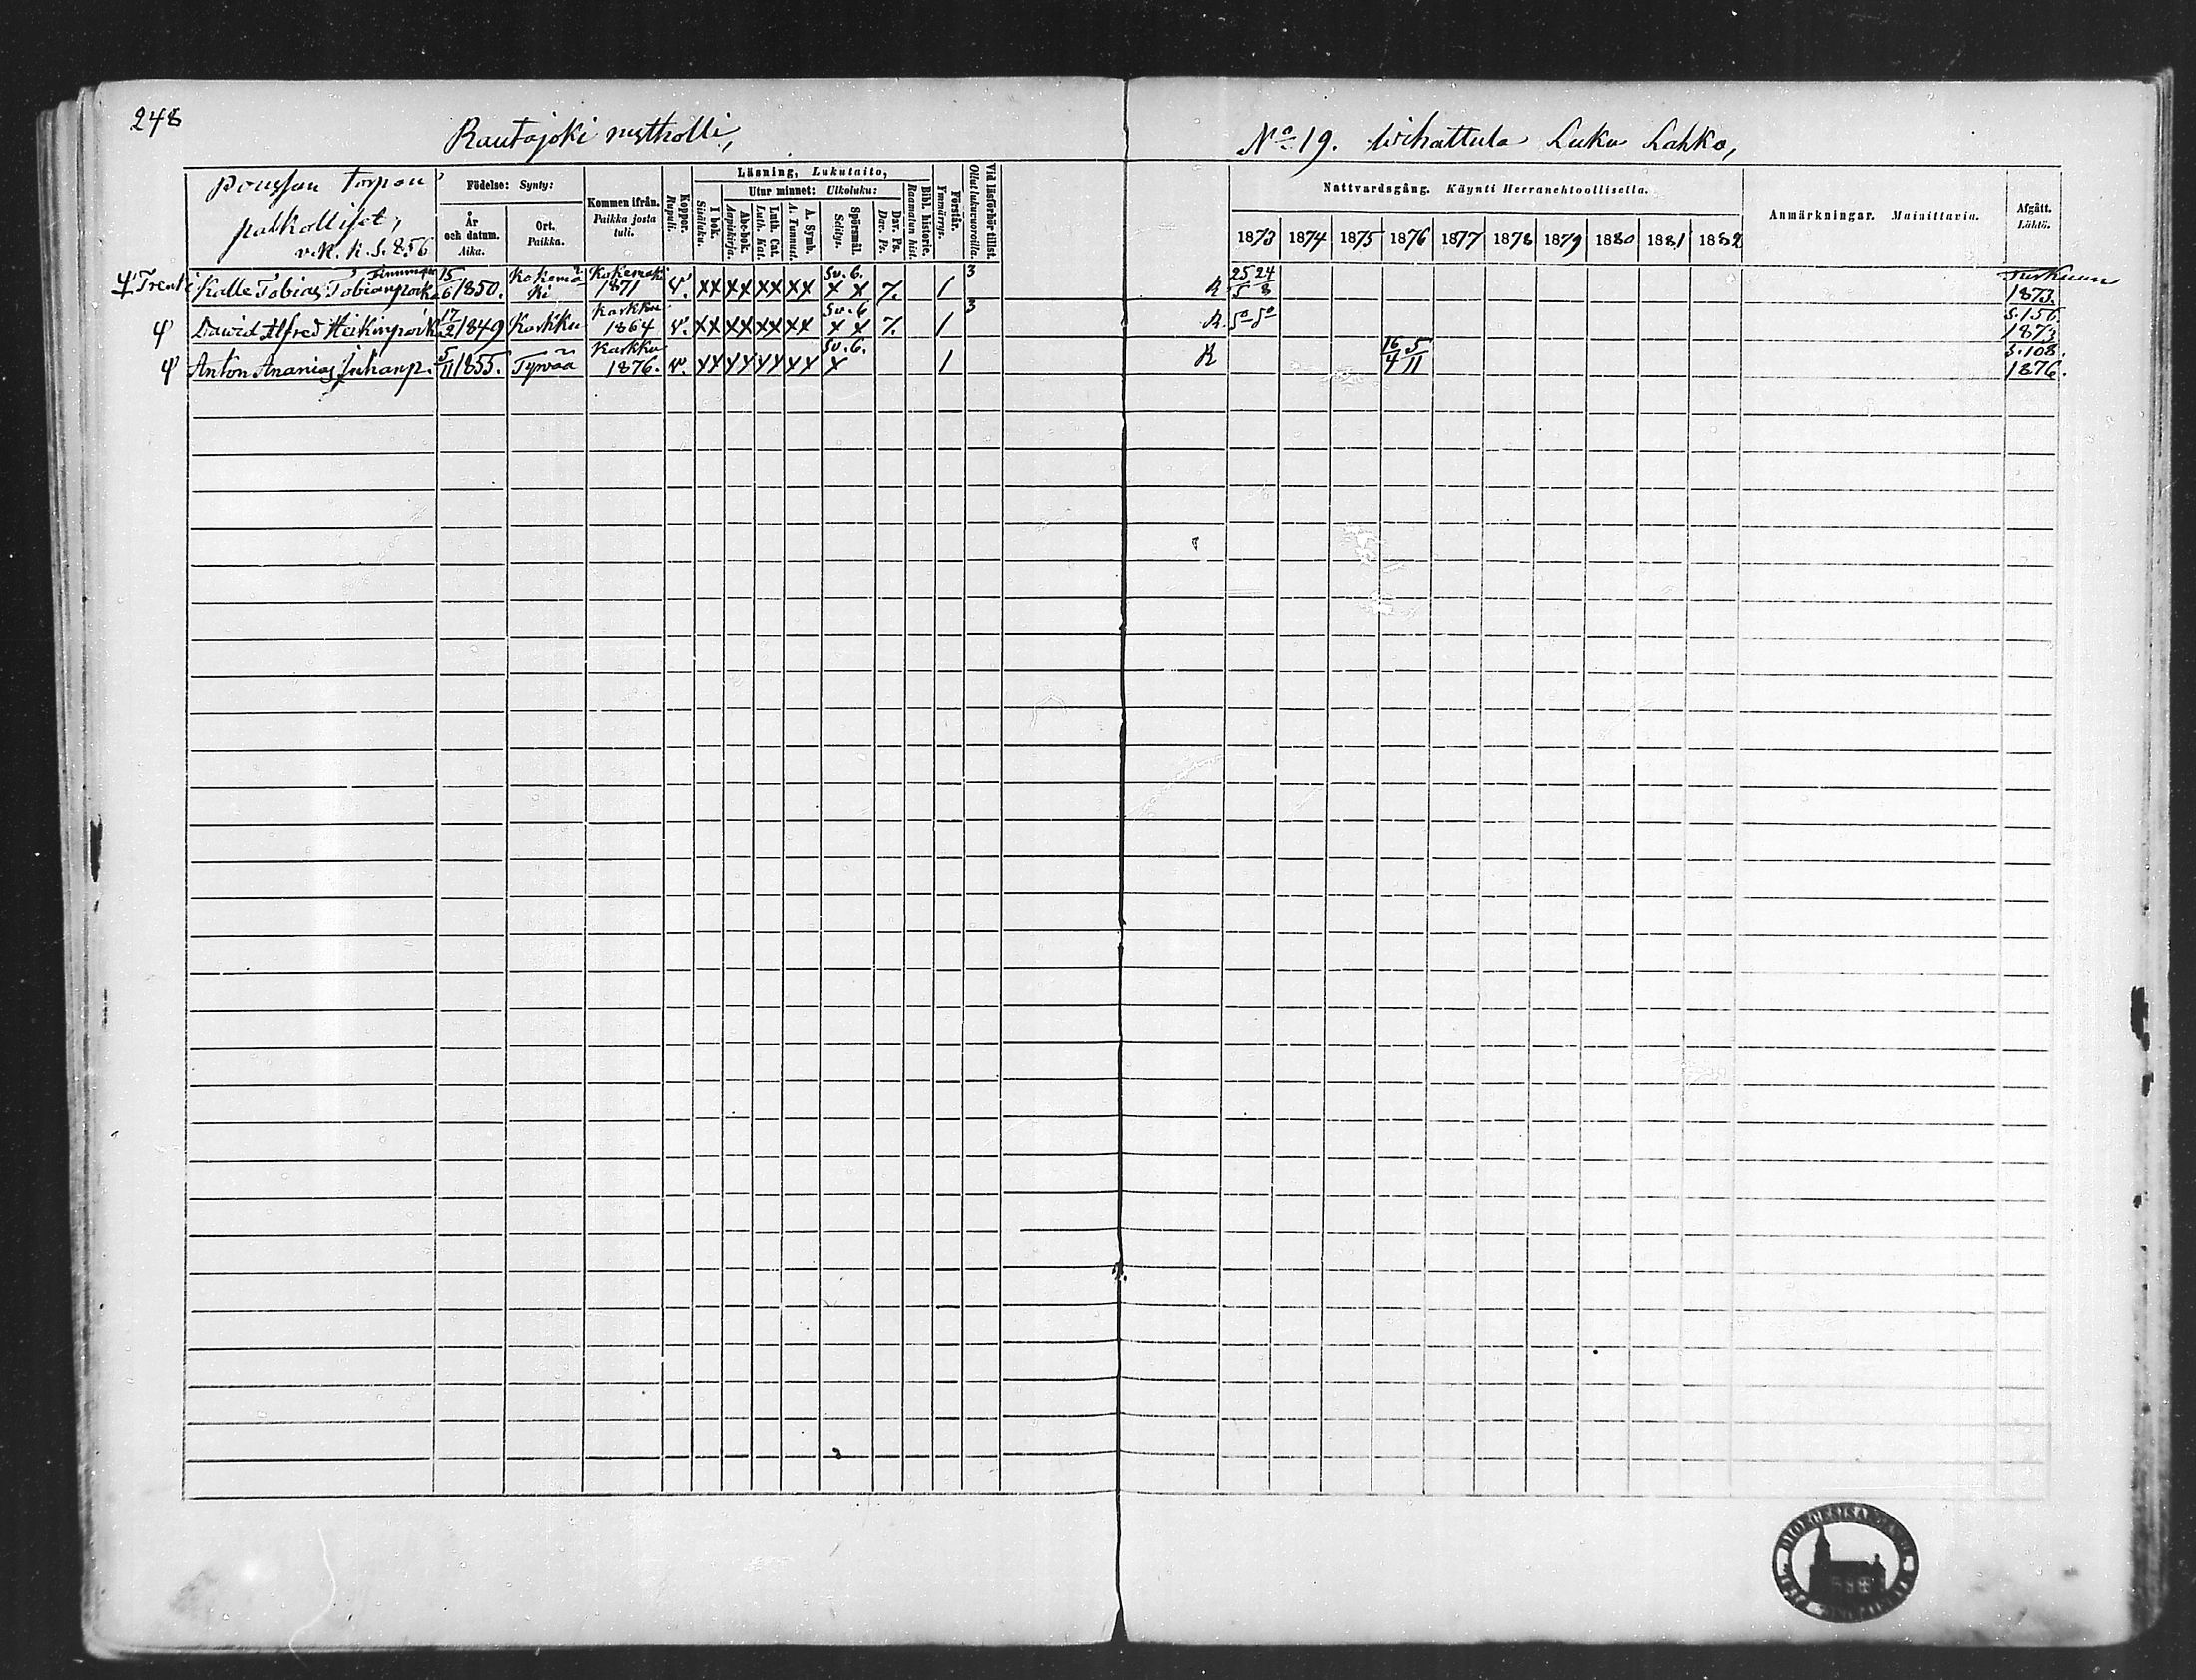 248
Rautajoki rustholli,
No 19. Wihattula Luku Lahko,
Torpan
palkolliset,
v. R. k. S. 856
Födelse: Synty:
År och datum. Aika.
Ort. Paikka.
Kommen ifrån. Paikka josta tuli.
Koppor. Rupuli.
Läsning, Lukutaito,
I bok. Sisäluku.
Utur minnet: Ulkoluku:
Abc-bok. Aapiskirja.
Luth. Cat. Luth. Kat.
A. Symb. A. Tunnust.
Spörsmål. Selitys.
Dav. Ps. Dav. Ps.
Bibl. historie. Raamatun hist.
Förstår. Ymmärrys.
Vid läsförhör tillst. Ollut lukuvuoroilla.
Nattvardsgång. Käynti Herranehtoollisella.
1873 1874 1875 1876 1877 1878 1879 1880 1881 1882
Anmärkningar. Mainittavia.
Afgått. Lähtö.
Kalle Tobias Tobianpoika 15/6 1850. Kokemäki Kokemäki 1871 v. xx xx xx xx Sv. 6. x x 7. 1 3 R 25/5 24/8 Turkuun 1873.
David Alfred Heikinpoik 17/2 1849 Karkku Karkku 1864 v. xx xx xx xx Sv. 6 x x 7. 1 3 R. S. 156 1873
Anton Ananias Juhanp. 5/11 1855. Tyrvää Karkku 1876. v. xx xx xx xx Sv. 6. x 1 R 16/4 5/11 S. 108. 1876.